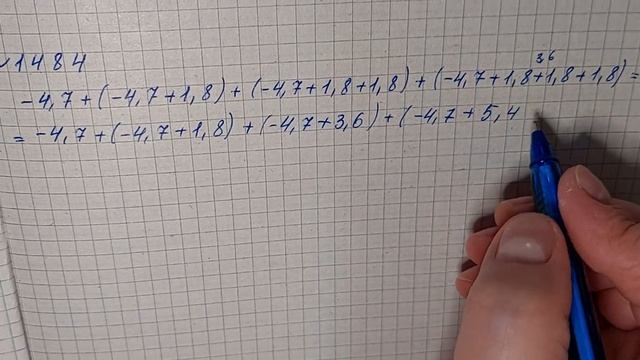 √1484
3,6
-4,7+(-4,7+1,8)+(-4,7+1,8+1,8)+(-4,7+1,8+1,8+1,8)=
=-4,7+(-4,7+1,8)+(-4,7+3,6)+(-4,7+5,4